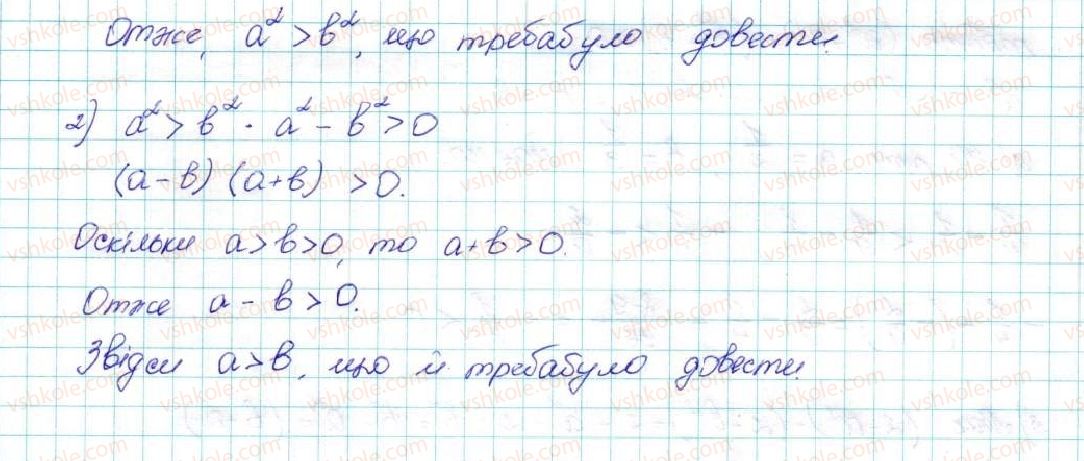 Отже, a² > b², що требабуло довести.
2) a² > b² · a² - b² > 0
(a - b) (a + b) > 0.
Оскільки a > b > 0, то a + b > 0.
Отже a - b > 0.
Звідси a > b, що й требабуло довести.